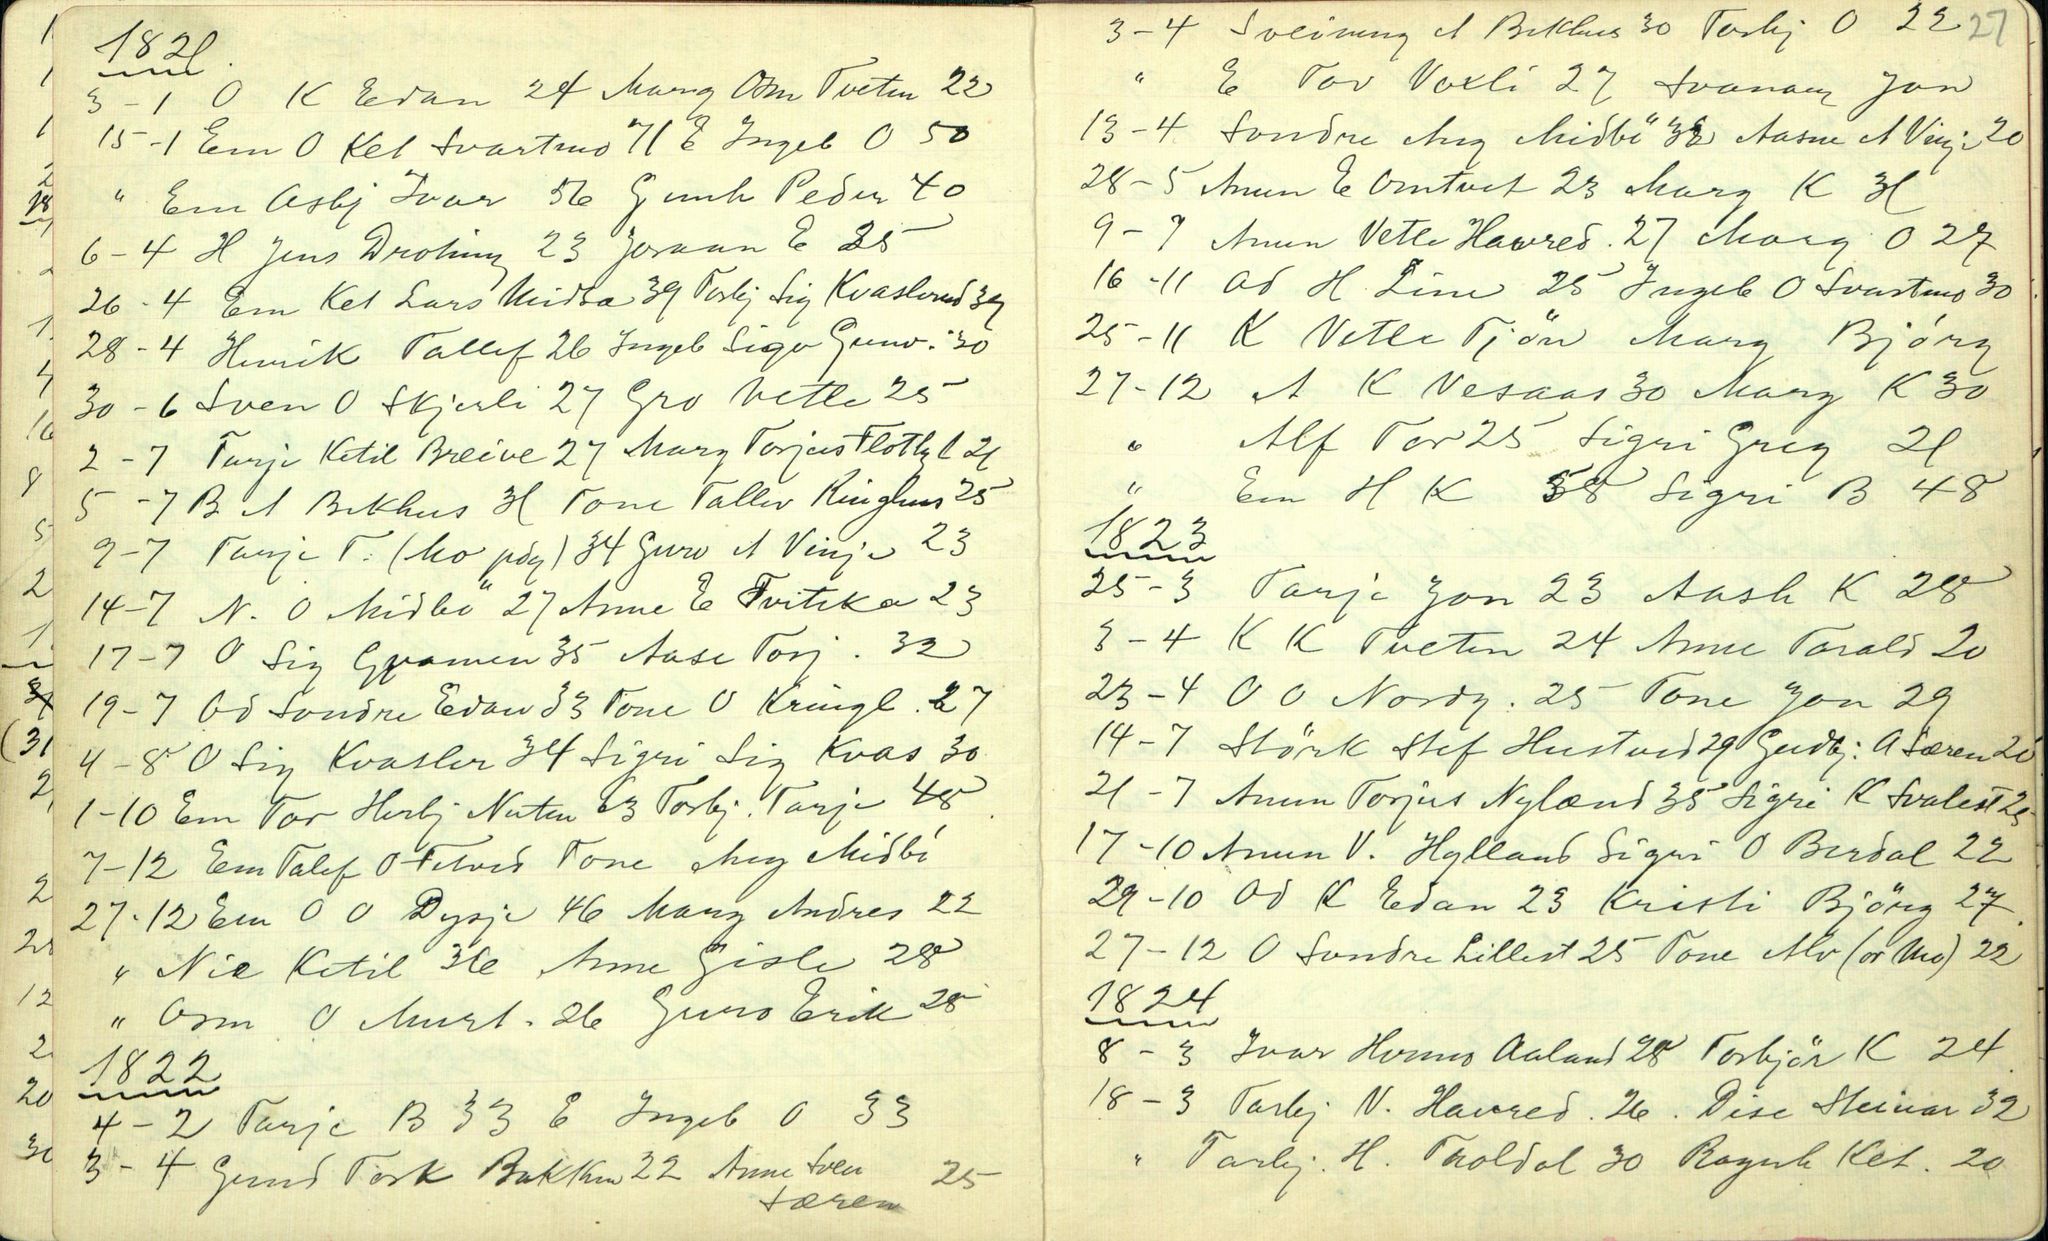 1821.
3-1 O K Edan 24 Marg Osm Tveten 22
15-1 Em O Ket Svartmo 71 E Ingeb O 50
" Em Asbj Ivar 56 Gunh Peder 40
6-4 H Jens Droking 23 Joraan E 25
26-4 Em Ket Lars Midbø 39 Torbj Sig Kvaslerud 39
28-4 Henrik Tallef 26 Ingeb Sigv Gunv. 30
30-6 Sven O Skjerli 27 Gro Vetle 25
2-7 Tarje Ketil Breive 27 Marg Torjus Flothyl 21
5-7 B A Bekhus 31 Tone Tallev Ringhus 25
9-7 Tarje T. (Mo pdg) 34 Guro A Vinje 23
14-7 N. O Midbö 27 Anne E Tviteka 23
17-7 O Sig Gramen 35 Aase Torj. 32
19-7 Od Sondre Edan 33 Tone O Kringl. 27
4-8 O Sig Kvasler 34 Sigri Sig Kvas 30
1-10 Em Tor Herbj Nuten 63 Torbj. Tarje 48
7-12 Em Talef O Felved Tone Aug Midbö
27-12 Em O O Dysje 46 Marg Andres 22
" Nie Ketil 36 Anne Gisle 28
" Osm O Murt. 26 Guro Erik 28
1822
4-2 Tarje B 33 E Ingeb O 33
3-4 Gund Tork Bakken 22 Anne Sven 25
Særen
27
3-4 Sveinung A Bekhus 30 Torbj O 22
" E Tov Voxli 27 Svanaug Jon
13-4 Sondre Aug Midbö 32 Aasne A Vinje 20
28-5 Anun E Omtvet 23 Marg K 31
9-7 Anun Vetle Haured. 27 Marg O 27
16-11 Od H Line 25 Ingeb O Svartmo 30
25-11 K Vetle Tjön Marg Björg
27-12 A K Vesaas 30 Marg K 30
" Alf Tor 25 Sigri Greg 21
" Em H K 58 Sigri B 48
1823
25-3 Tarje Jon 23 Aash K 28
3-4 K K Tveten 24 Anne Torald 20
23-4 O O Nordg. 25 Tone Jon 29
14-7 Störk Stef Hustved 29 Gudbj: A Særen 20
21-7 Anun Torjus Nylænd 35 Sigri K Svalest 25
17-10 Anun V. Hylland Sigri O Berdal 22
29-10 Od K Edan 23 Kristi Björg 27.
27-12 O Sondre Lillest 25 Tone Alv (or Mo) 22
1824
8-3 Ivar Hermo Aaland 28 Torbjör K 24
18-3 Tarbj V. Haured. 26. Dise Steinar 32
" Tarbj. H. Troldal 30 Ragnh Ket. 20